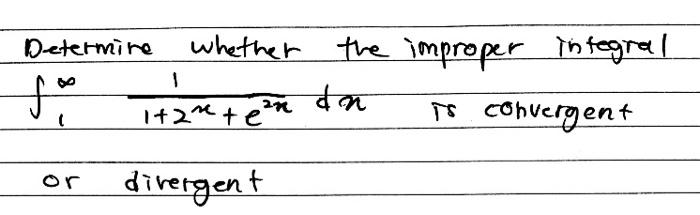 Determine whether the improper integral
∫₁^∞ 1/(1+2^x+e^{2x}) dx is convergent
or divergent